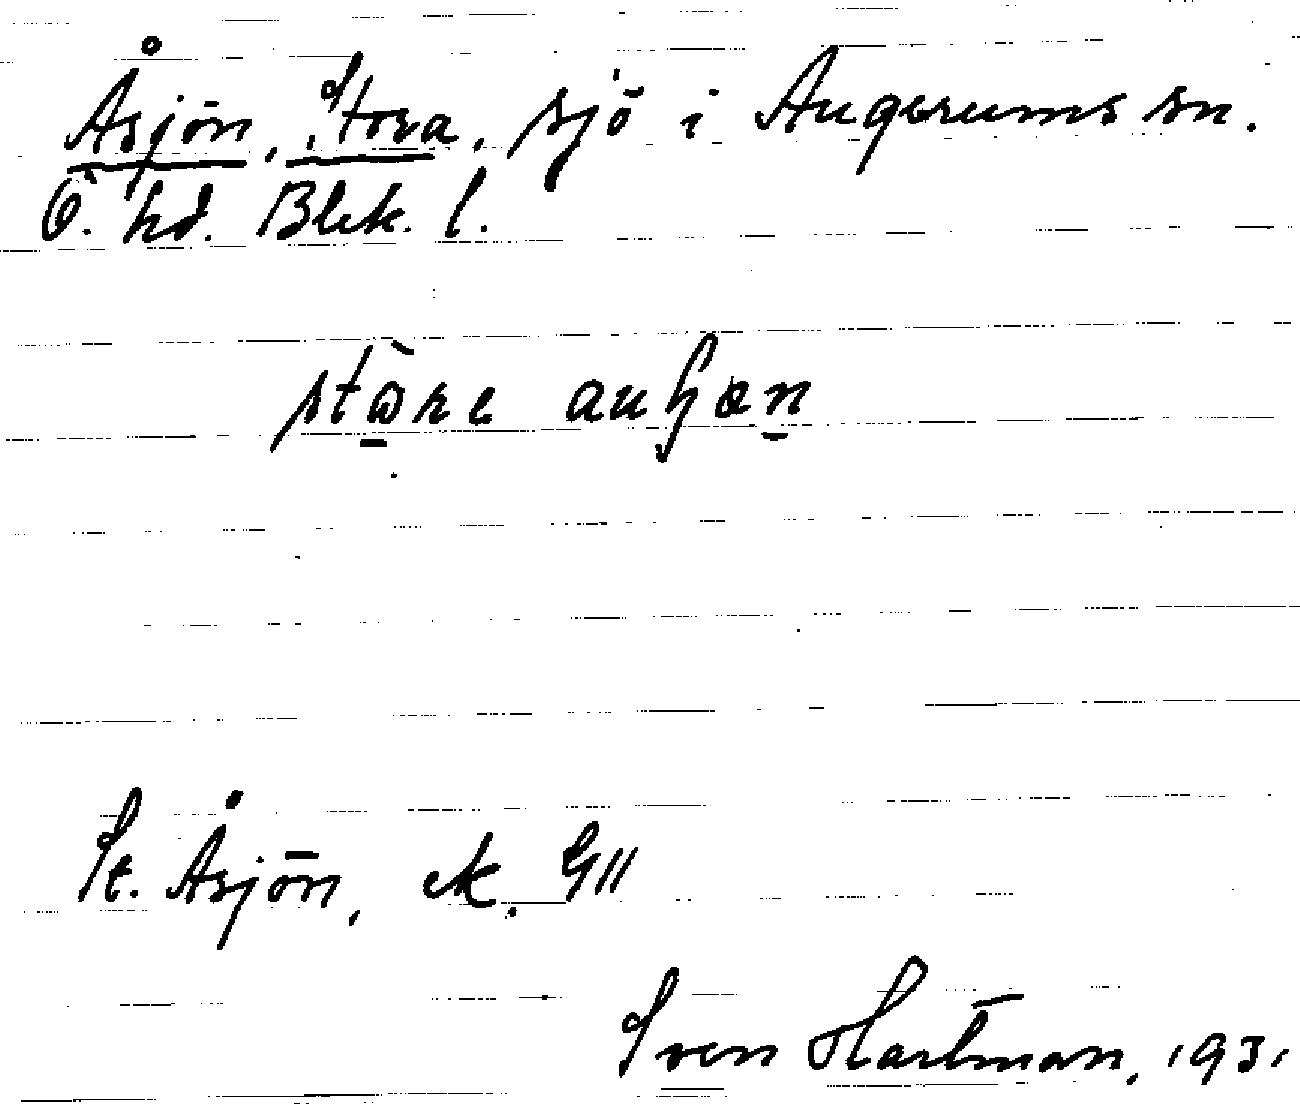 Åsjön, Stora, sjö i Augerums sn.
Ö. hd. Blek. l.
St. Åsjön, ek. G11
Sven Hartman, 1931